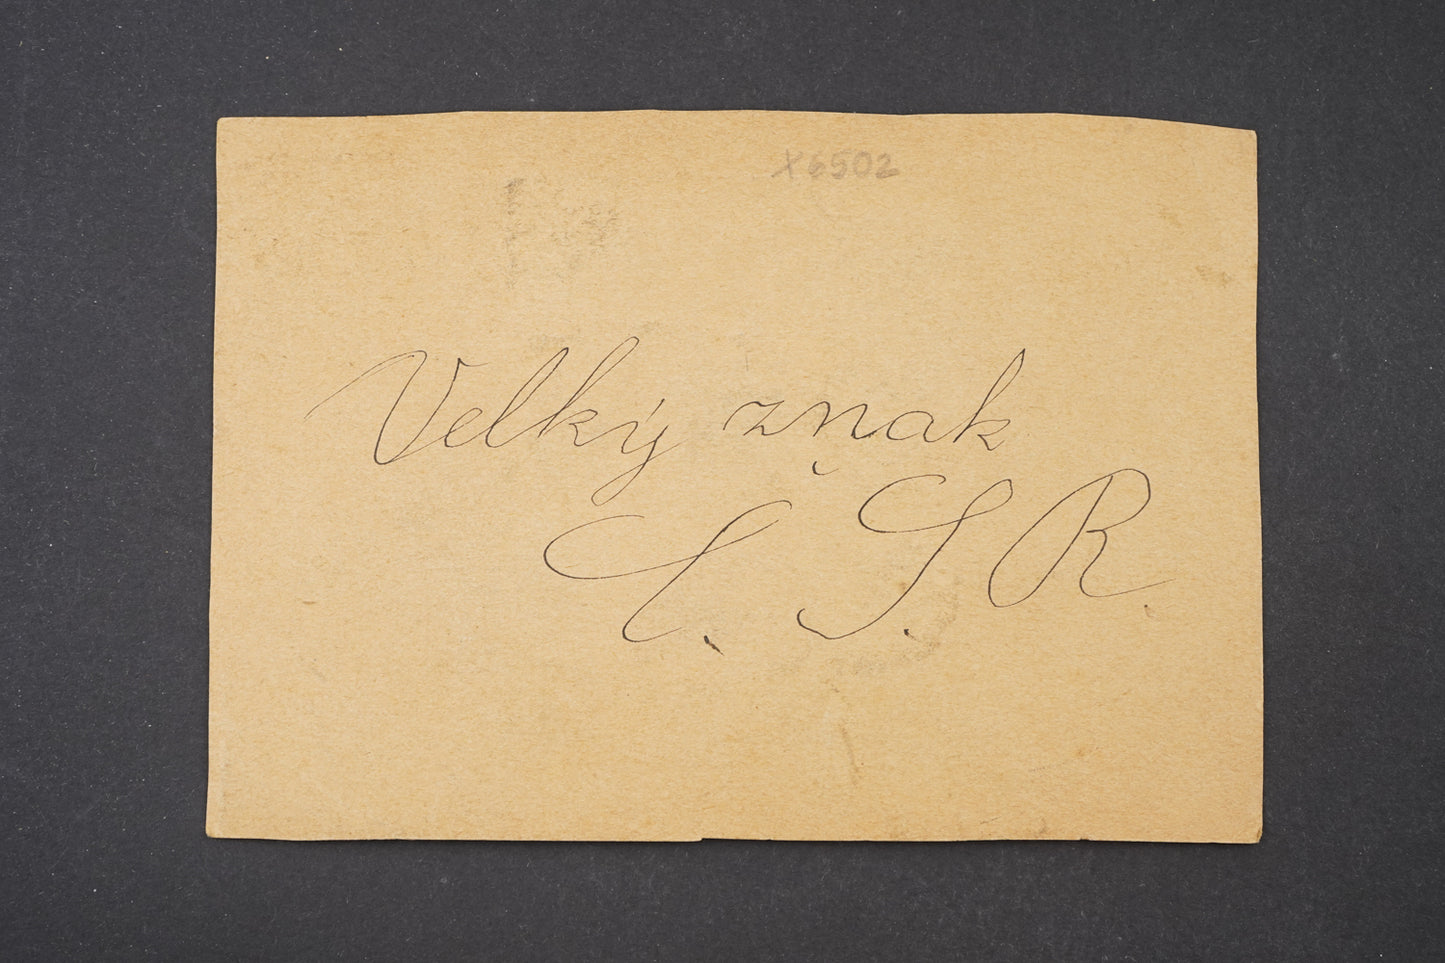 X6502
Velký znak
Č. S. R.